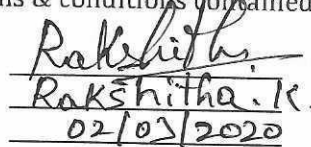 ns & conditions contained
Rakshitha
Rakshitha.K
02/03/2020